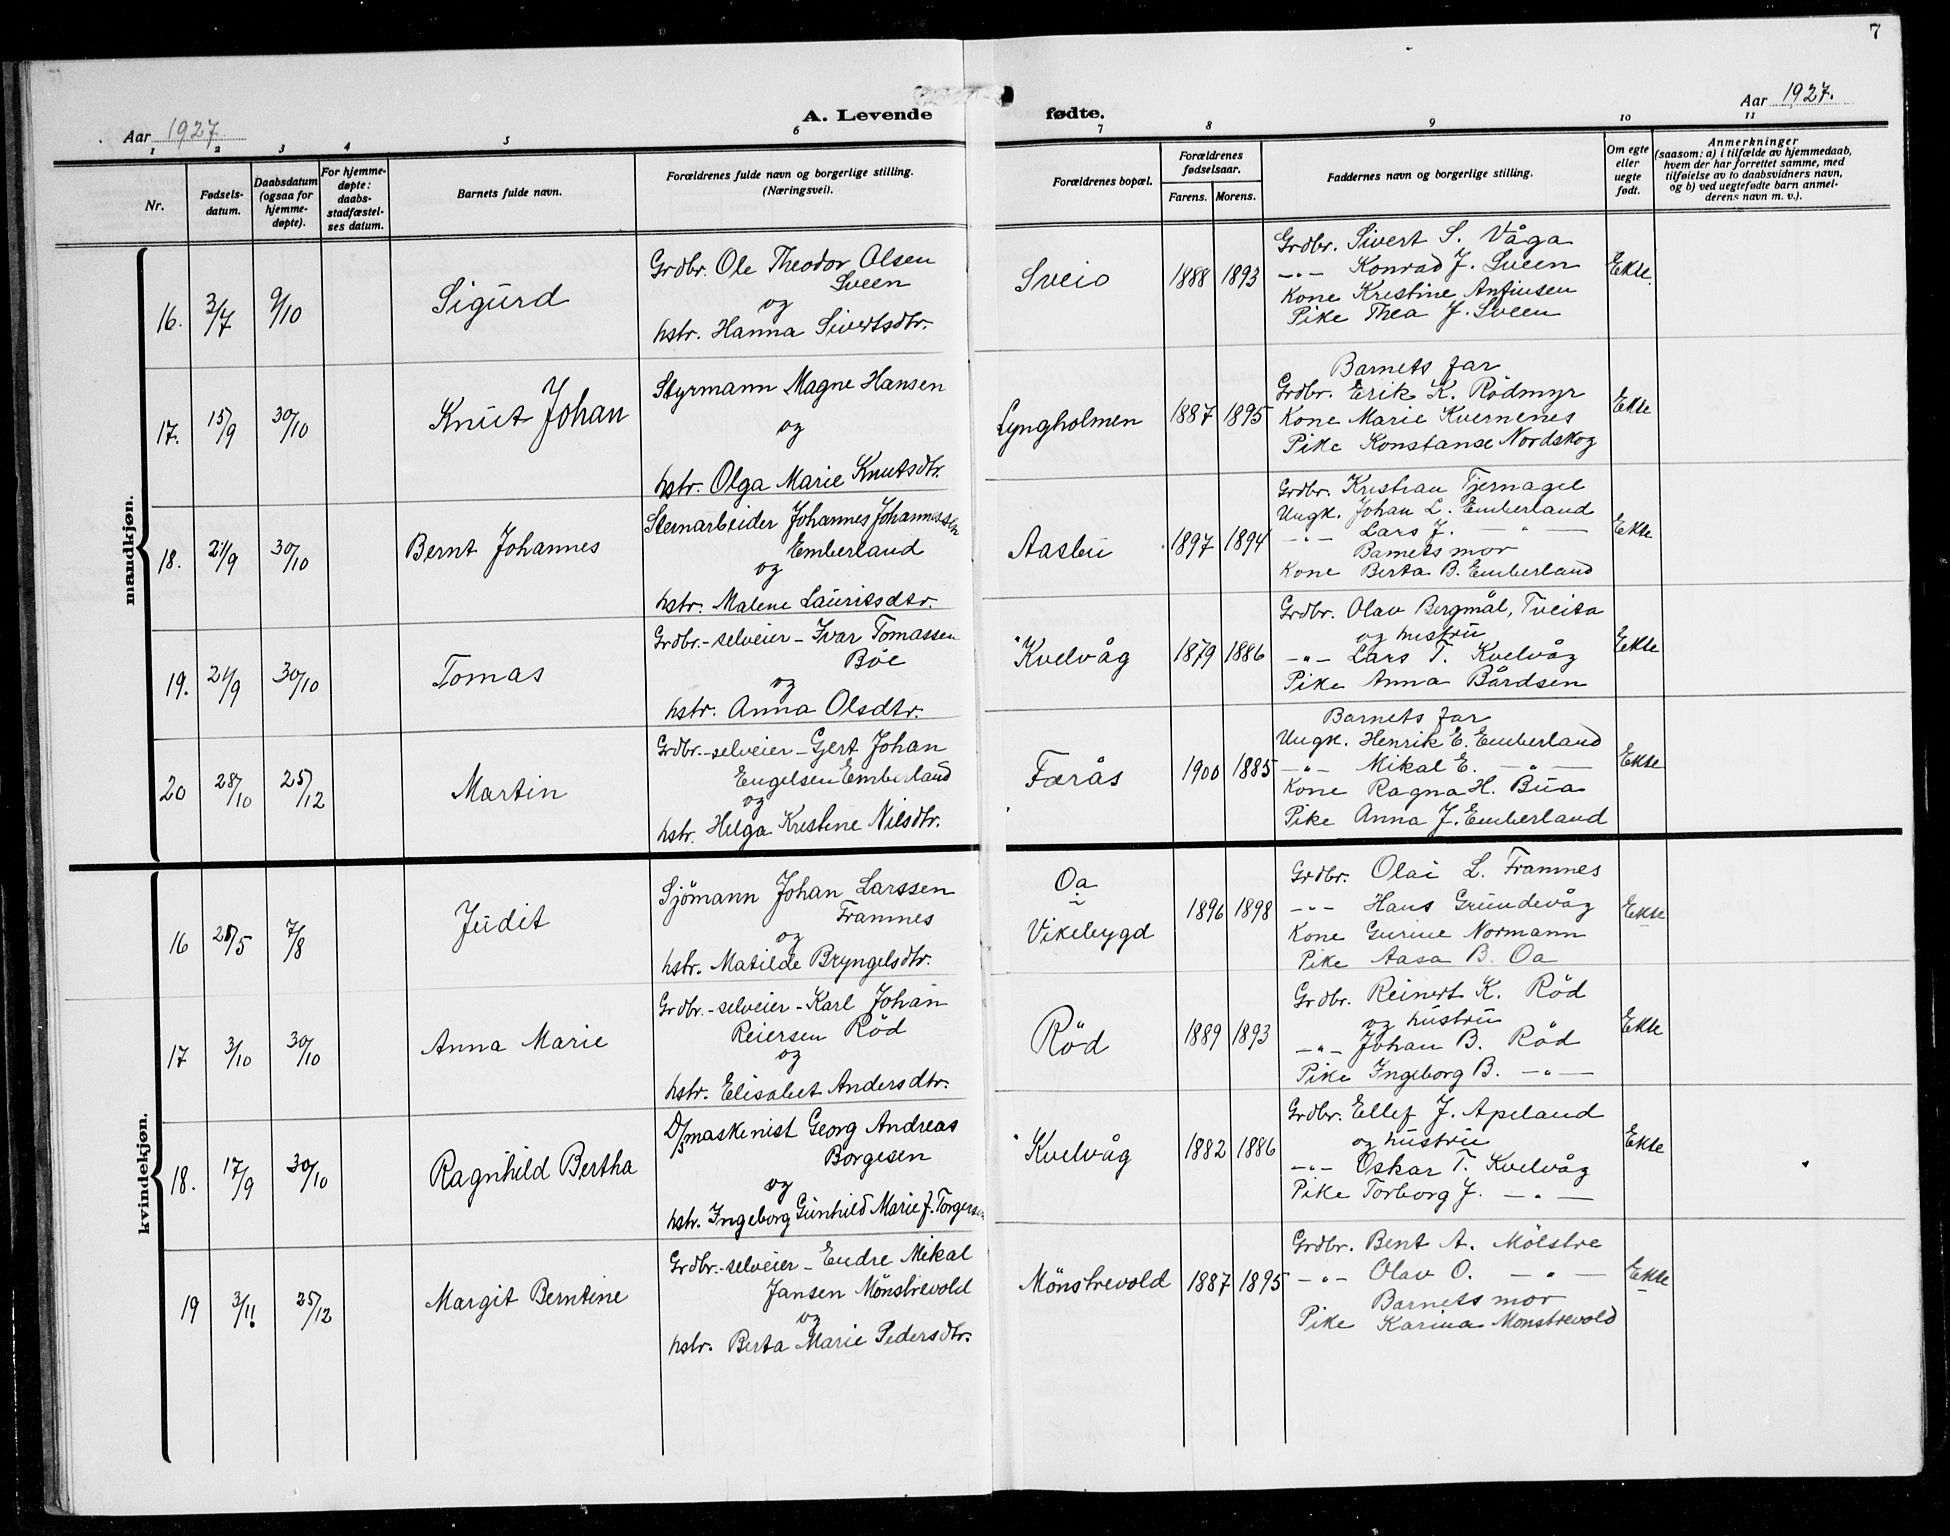 7
Aar 1927. A. Levende fødte. Aar 1927.
1 2 3 4 5 6 7 8 9 10 11
Nr. Fødsels-datum. Daabsdatum (ogsaa for hjemme-døpte). For hjemme-døpte: daabs-stadfæstel-ses datum. Barnets fulde navn. Forældrenes fulde navn og borgerlige stilling. (Næringsvei). Forældrenes bopæl. Forældrenes fødselsaar. Farens. Morens. Faddernes navn og borgerlige stilling. Om egte eller uegte født. Anmerkninger (saasom: a) i tilfælde av hjemmedaab, hvem der har forrettet samme, med tilføielse av to daabsvidners navn, og b) ved uegtefødte barn anmel-derens navn m. v.).
mandkjøn.
16. 3/7 9/10 Sigurd
Grdbr. Ole Theodor Olsen
Sveen
og
hstr. Hanna Sivertsdtr.
Sveio 1888 1893
Grdbr. Sivert S. Våga
-"- Konrad J. Sveen
Kone Kristine Anfinsen
Pike Thea J. Sveen
Ekte.
17. 15/9 30/10 Knut Johan
Styrmann Magne Hansen
og
hstr. Olga Marie Knutsdtr.
Lyngholmen 1887 1895
Barnets far
Grdbr. Erik K. Rödmyr
Kone Marie Kvernenes
Pike Konstanse Nordskog
Ekte
18. 21/9 30/10 Bernt Johannes
Stenarbeider Johannes Johannessen
Emberland
og
hstr. Malene Lauritsdtr.
Aasbu 1897 1894
Grdbr. Kristian Tjernagel
Ungk. Johan L. Emberland
-"- Lars J. — " —
Barnets mor
Kone Berta B. Emberland
Ekte
19. 21/9 30/10 Tomas
Grdbr.-selveier - Ivar Tomassen
Böe
og
hstr. Anna Olsdtr.
Kvelvåg 1879 1886
Grdbr. Olav Bergmål, Tveita
og hustru
-"- Lars T. Kvelvåg
Pike Anna Bårdsen
Ekte
20 28/10 25/12 Martin
Grdbr.-selveier - Gert Johan
Engelsen Emberland
og
hstr. Helga Kristine Nilsdtr.
Færås 1900 1885
Barnets far
Ungk. Henrik E. Emberland
-"- Mikal E. — " —
Kone Ragna H. Bua
Pike Anna J. Emberland
Ekte
kvindekjøn.
16 /5 7/8 Judit
Sjömann Johan Larssen
Framnes
og
hstr. Matilde Bryngelsdtr.
Oa
i
Vikebygd 1896 1898
Grdbr. Olai L. Framnes
-"- Hans Grundevåg
Kone Gurine Normann
Pike Aasa B. Oa
Ekte
17 3/10 30/10 Anna Marie
Grdbr.-selveier - Karl Johan
Reiersen Röd
og
hstr. Elisabet Andersdtr.
Röd 1889 1893
Grdbr. Reinert K. Röd
og hustru
-"- Johan B. Röd
Pike Ingeborg B. — " —
Ekte
18. 17/9 30/10 Ragnhild Bertha
D/maskinist Georg Andreas
Borgesen
og
hstr. Ingeborg Gunhild Marie f. Torgersen
Kvelvåg 1882 1886
Grdbr. Ellef J. Apeland
og hustru
-"- Oskar T. Kvelvåg
Pike Torborg J. — " —
Ekte
19 3/11 25/12 Margit Berntine
Grdbr.-selveier - Endre Mikal
Jansen Mönstrevold
og
hstr. Berta Marie Pedersdtr.
Mönstrevold 1887 1895
Grdbr. Bent A. Mölstre
-"- Olav O. — " —
Barnets mor
Pike Karina Monstrevold
Ekte